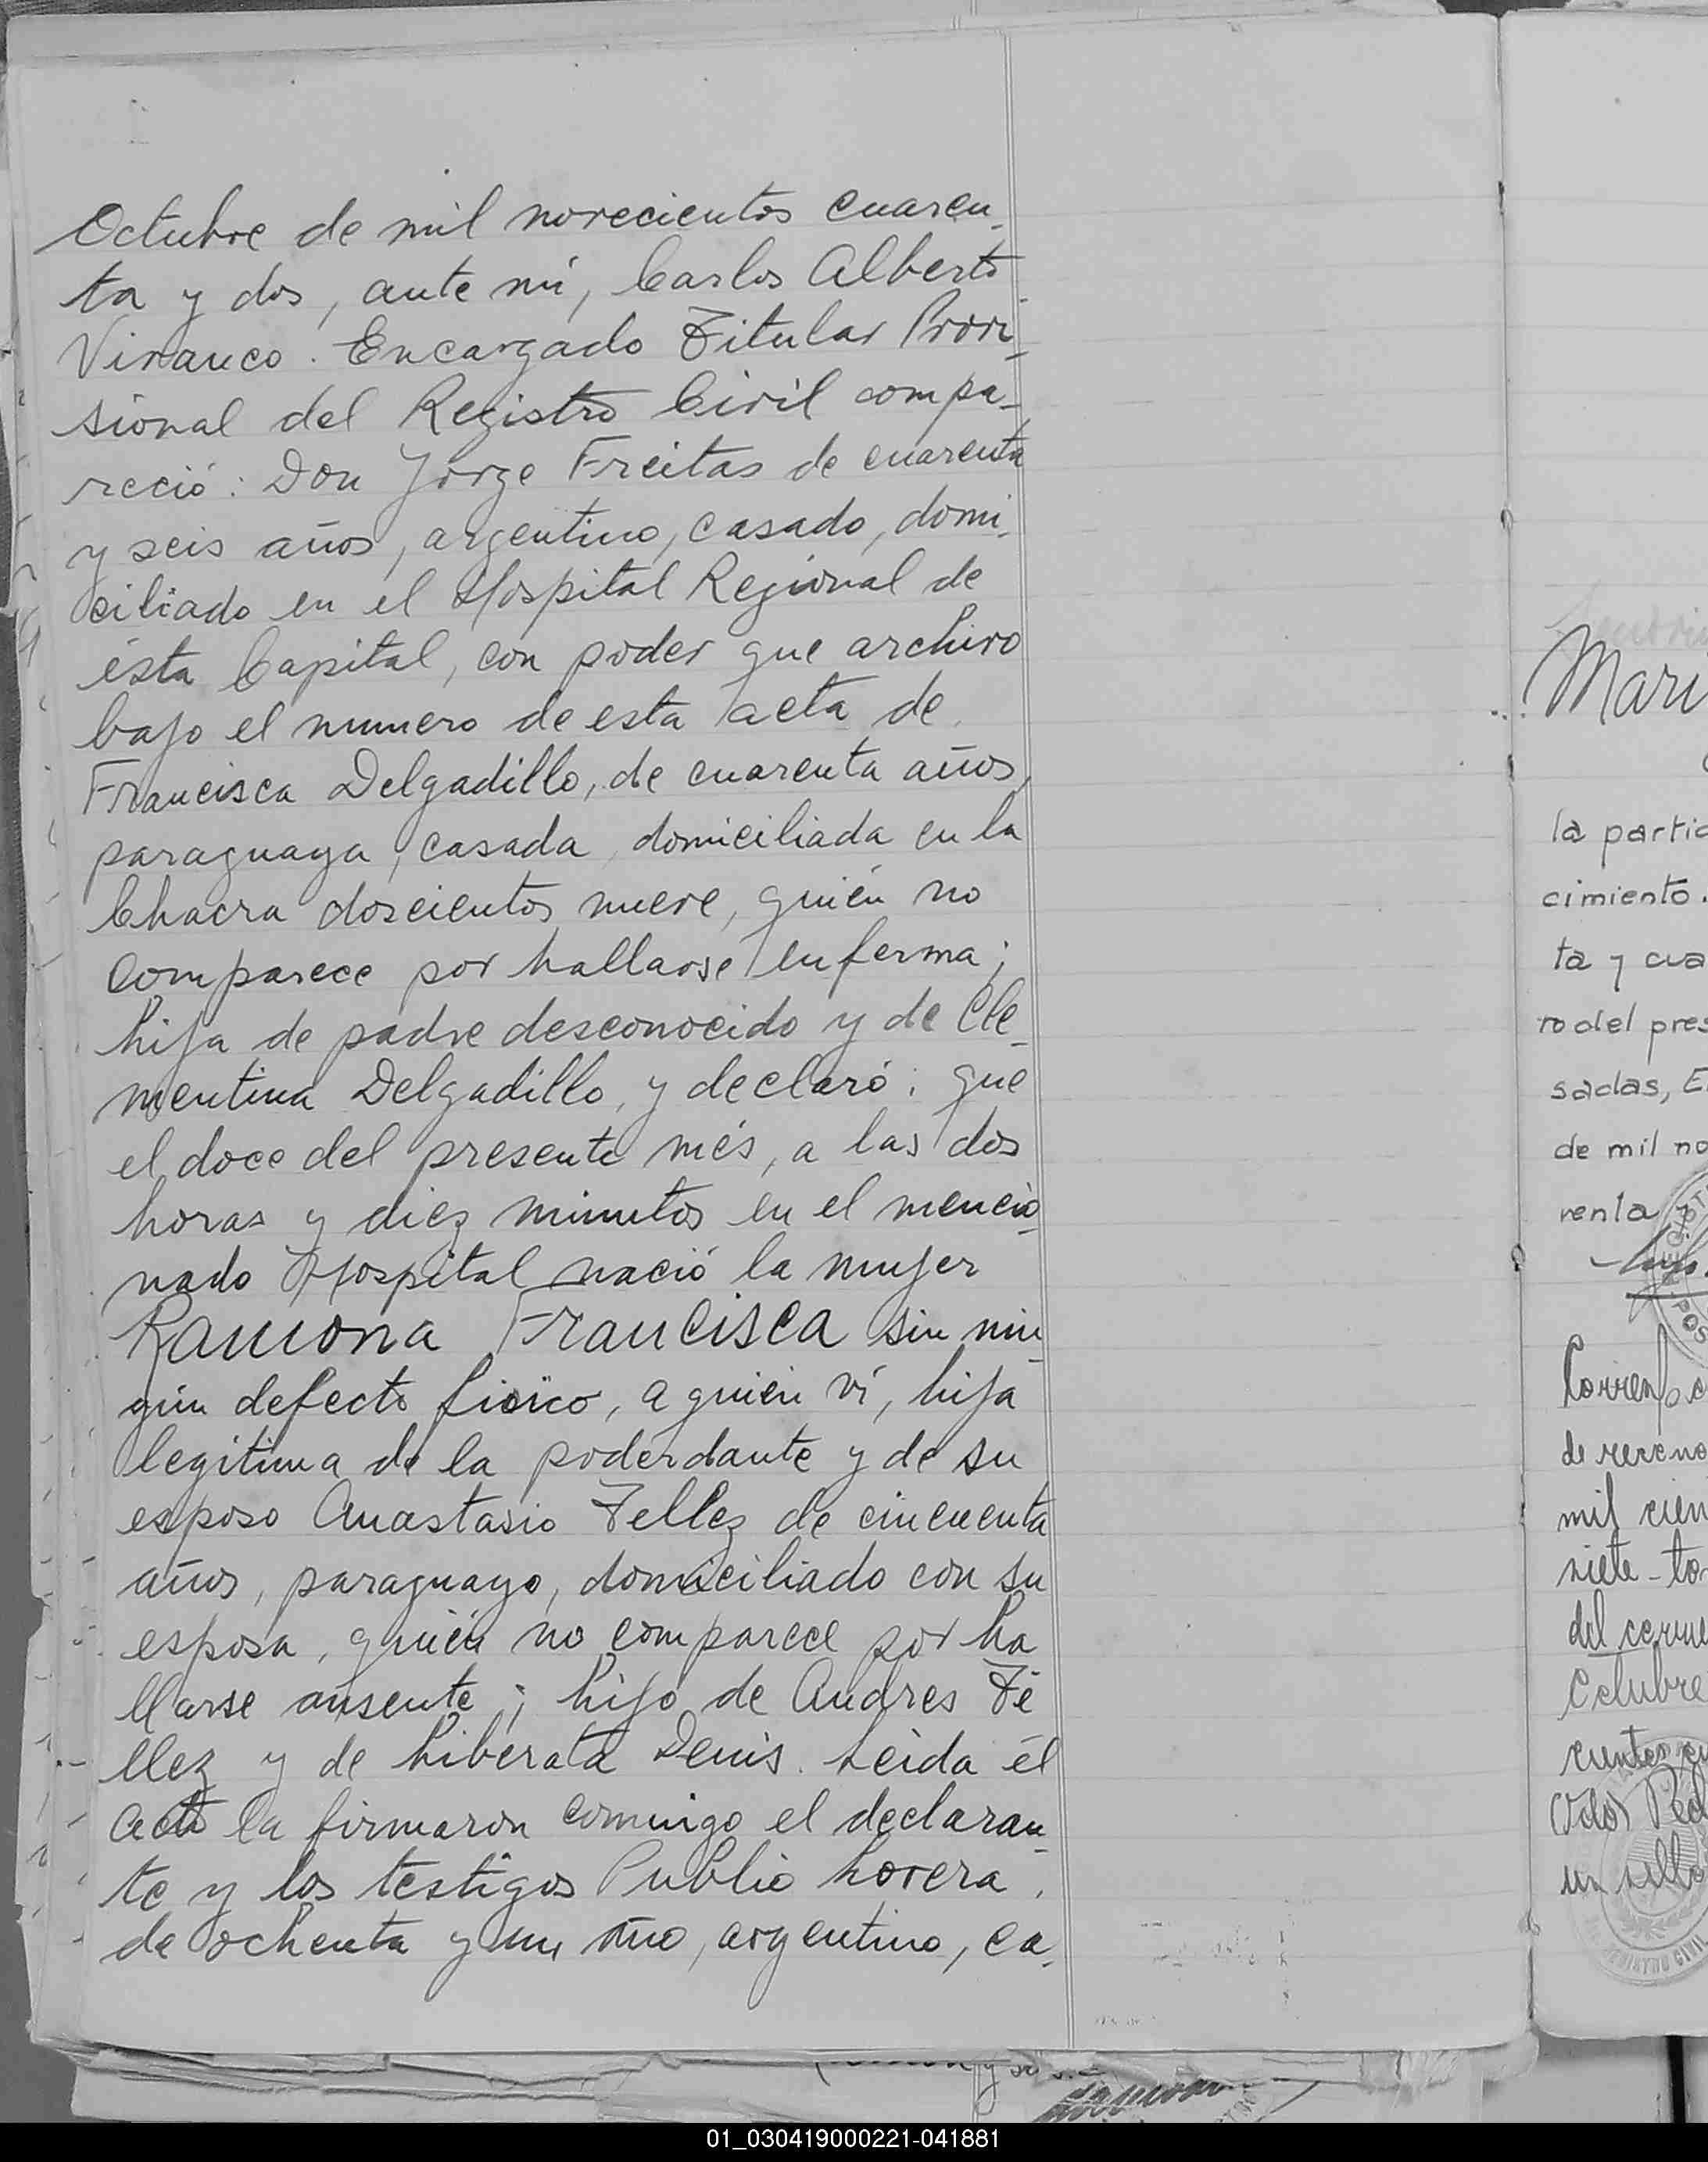 Octubre de mil novecientos cuaren-
ta y dos, ante mí, Carlos Alberto
Vivanco. Encargado Titular Provi-
sional del Registro Civil compa-
reció: Don Jorge Freitas de cuarenta
y seis años, argentino, casado, domi-
ciliado en el Hospital Regional de
ésta Capital, con poder que archivo
bajo el numero de esta acta de
Francisca Delgadillo, de cuarenta años,
paraguaya, casada, domiciliada en la
Chacra doscientos nueve, quién no
comparece por hallarse enferma;
hija de padre desconocido y de Cle-
mentina Delgadillo, y declaró: que
el doce del presente més, a las dos
horas y diez minutos en el mencio-
nado Hospital nació la mujer
Ramona Francisca sin nin-
gún defecto fisico, a quién ví, hija
legitima de la poderdante y de su
esposo Anastasio Tellez de cincuenta
años, paraguayo, domiciliado con su
esposa, quién no comparece por ha
llarse ausente; hijo de Andres Té
llez y de Liberata Denis. Leida él
acta la firmaron conmigo el declaran-
te y los testigos Publio Lovera,
de ochenta y un año, argentino, ca-
Mari
la partid
cimiento.
ta y cua
ro del pres
sadas, E
de mil no
renta y
Corresp
de recono
mil cien
siete - to
del corrie
Octubre
cientos cu
(Vdo)
un sello
REGISTRO CIVIL
01_030419000221-041881